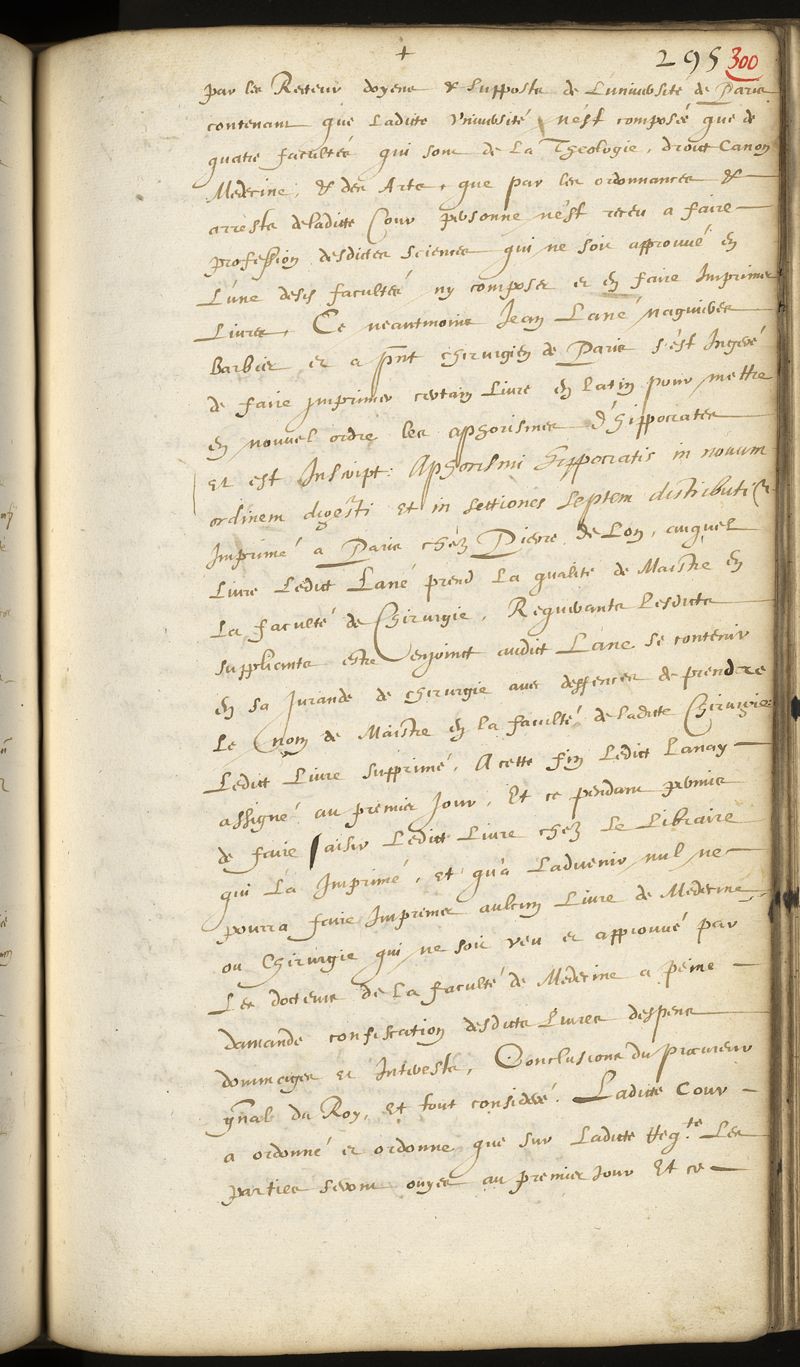 +
295 300
par les Recteur doyens & supposts de L'université de Paris
contenant que Ladicte Université n'est composée que de
quatre facultés qui sont de La Theologie, droict Canon
Medecine, & des Arts, que par les ordonnances &
arrests de ladicte Cour personne n'est receu a faire
profession desdictes sciences qui ne soit approuvé en
L'une desd. facultés ny composer et en faire Imprimer
Livres, Ce neantmoins Jean Lané naguieres
Barbier et a pnt chirurgien de Paris s'est Ingeré
de faire imprimer certain Livre en Latin pour mettre
en nouvel ordre les aphorismes d'hippocrates
et est Inscript: Aphorismi hippocratis in novum
ordinem digesti et in sectiones septem distributi &
Imprimé a Paris chéz Pierre de Lon, auquel
Livre Ledict Lané prend La qualité de Maistre en
La faculté de Chirurgie, Requirants Lesdicts
suppliants estre enjoinct audict Lane se contenir
en sa Jurande de chirurgie avec deffences de prendre
Le nom de Maistre en la faculté de ladicte Chirurgie
Ledict Livre supprimé, A cette fin Ledict Lanay
assigné au premier Jour, Et ce pendant permis
de faire saisir Ledict Livre chéz Le Libraire
qui L'a Imprimé, et qu'a L'advenir nul ne
pourra faire Imprimer aulcun Livre de Medecine
ou Chirurgie qui ne soit veu et approuvé par
Les docteurs de La faculté de Medecine a peine
damande confiscation desdicts Livres despens
dommages et Interests, Conclusions du procureur
gñal du Roy, Et tout consideré. Ladicte Cour
a ordonné et ordonne que sur Ladicte Req.te Les
parties seront ouyes au premier Jour Et ce